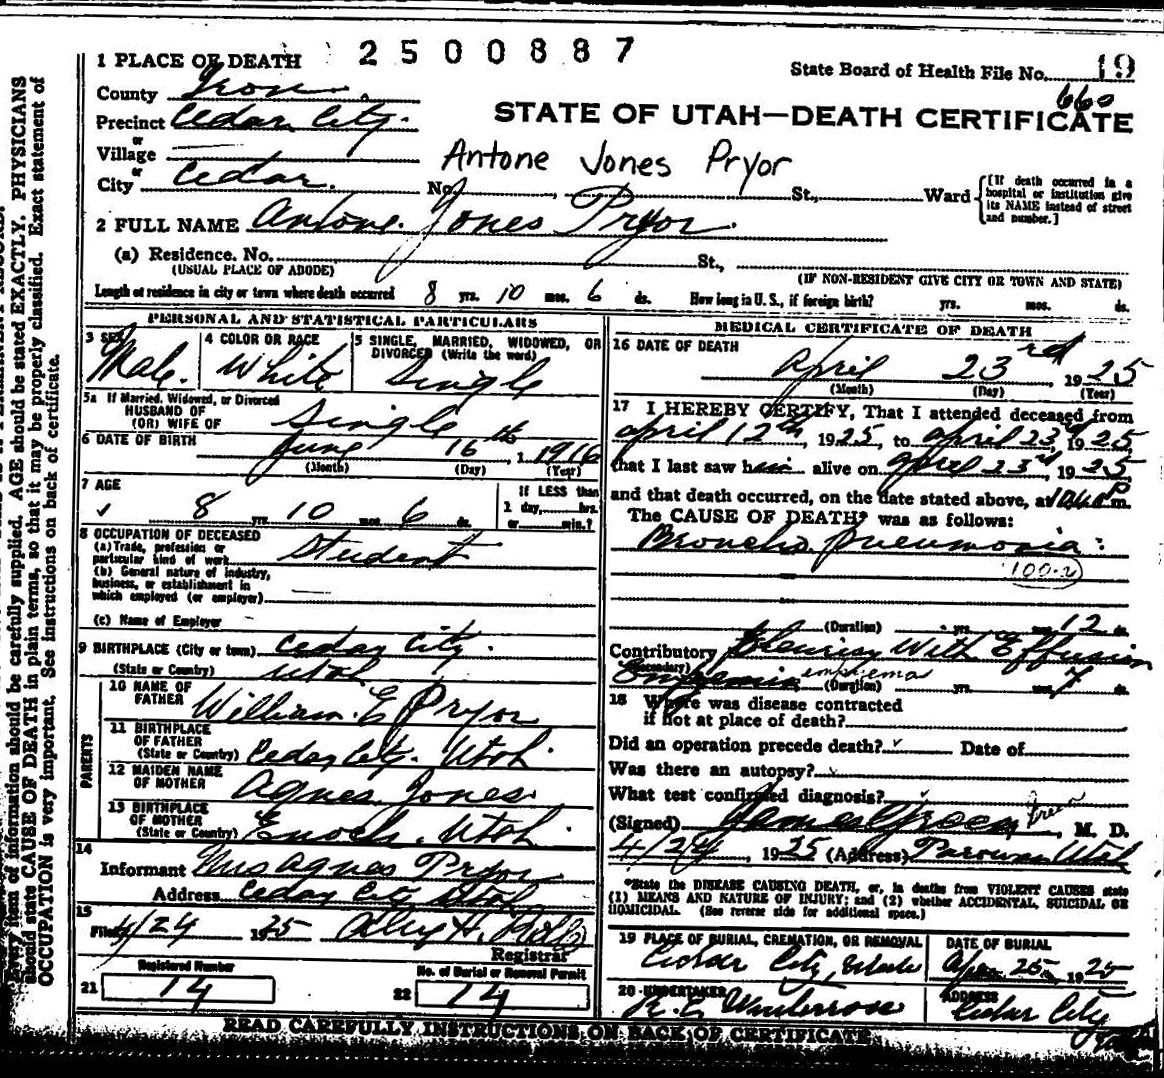 2500887
1 PLACE OF DEATH
State Board of Health File No. 19
660
County Iron.
STATE OF UTAH—DEATH CERTIFICATE
Precinct Cedar City.
or
Village
Antone Jones Pryor
or
City Cedar. No. St., Ward
[If death occurred in a
hospital or institution give
its NAME instead of street
and number.]
2 FULL NAME Antone Jones Pryor.
(a) Residence. No. St.,
(USUAL PLACE OF ABODE) (IF NON-RESIDENT GIVE CITY OR TOWN AND STATE)
Length of residence in city or town where death occurred 8 yrs. 10 mos. 6 ds. How long in U. S., if foreign birth? yrs. mos. ds.
PERSONAL AND STATISTICAL PARTICULARS
3 SEX Male.
4 COLOR OR RACE White
5 SINGLE, MARRIED, WIDOWED, OR
DIVORCED (Write the word)
Single
5a If Married, Widowed, or Divorced
HUSBAND OF
(OR) WIFE OF Single
6 DATE OF BIRTH June 16th, 1916
(Month) (Day) (Year)
7 AGE
8 yrs. 10 mos. 6 ds.
If LESS than
1 day, hrs.
or min.?
8 OCCUPATION OF DECEASED
(a) Trade, profession or
particular kind of work Student
(b) General nature of industry,
business, or establishment in
which employed (or employer)
(c) Name of Employer
9 BIRTHPLACE (City or town) Cedar City.
(State or Country) Utah
PARENTS
10 NAME OF
FATHER William E Pryor
11 BIRTHPLACE
OF FATHER
(State or Country) Cedar City. Utah.
12 MAIDEN NAME
OF MOTHER Agnes Jones.
13 BIRTHPLACE
OF MOTHER
(State or Country) Enoch. Utah.
14
Informant Mrs Agnes Pryor
Address Cedar City Utah
15
Filed 4/24 1925
Registrar
Registered Number
21 14
No. of Burial or Removal Permit
22 14
MEDICAL CERTIFICATE OF DEATH
16 DATE OF DEATH
April 23rd, 1925
(Month) (Day) (Year)
17 I HEREBY CERTIFY, That I attended deceased from
April 12th, 1925, to April 23rd 1925,
that I last saw him alive on April 23rd, 1925,
and that death occurred, on the date stated above, at m.
The CAUSE OF DEATH* was as follows:
Broncho pneumonia:
100-2
(Duration) yrs. mos. 12 ds.
Contributory Pleurisy With Effusion
(Secondary) Empyemia emphyema
(Duration) yrs. mos. 7 ds.
18 Where was disease contracted
if not at place of death?
Did an operation precede death? Date of
Was there an autopsy?
What test confirmed diagnosis?
(Signed) James Green Green, M. D.
4/24, 1925 (Address) Parowan Utah
*State the DISEASE CAUSING DEATH, or, in deaths from VIOLENT CAUSES state
(1) MEANS AND NATURE OF INJURY; and (2) whether ACCIDENTAL, SUICIDAL OR
HOMICIDAL. (See reverse side for additional space.)
19 PLACE OF BURIAL, CREMATION, OR REMOVAL
Cedar City, Utah
DATE OF BURIAL
Apr 25 1925
20 UNDERTAKER
R. E. Winterrose
ADDRESS
Cedar City
READ CAREFULLY INSTRUCTIONS ON BACK OF CERTIFICATE
Every item of information should be carefully supplied. AGE should be stated EXACTLY. PHYSICIANS
should state CAUSE OF DEATH in plain terms, so that it may be properly classified. Exact statement of
OCCUPATION is very important. See instructions on back of certificate.